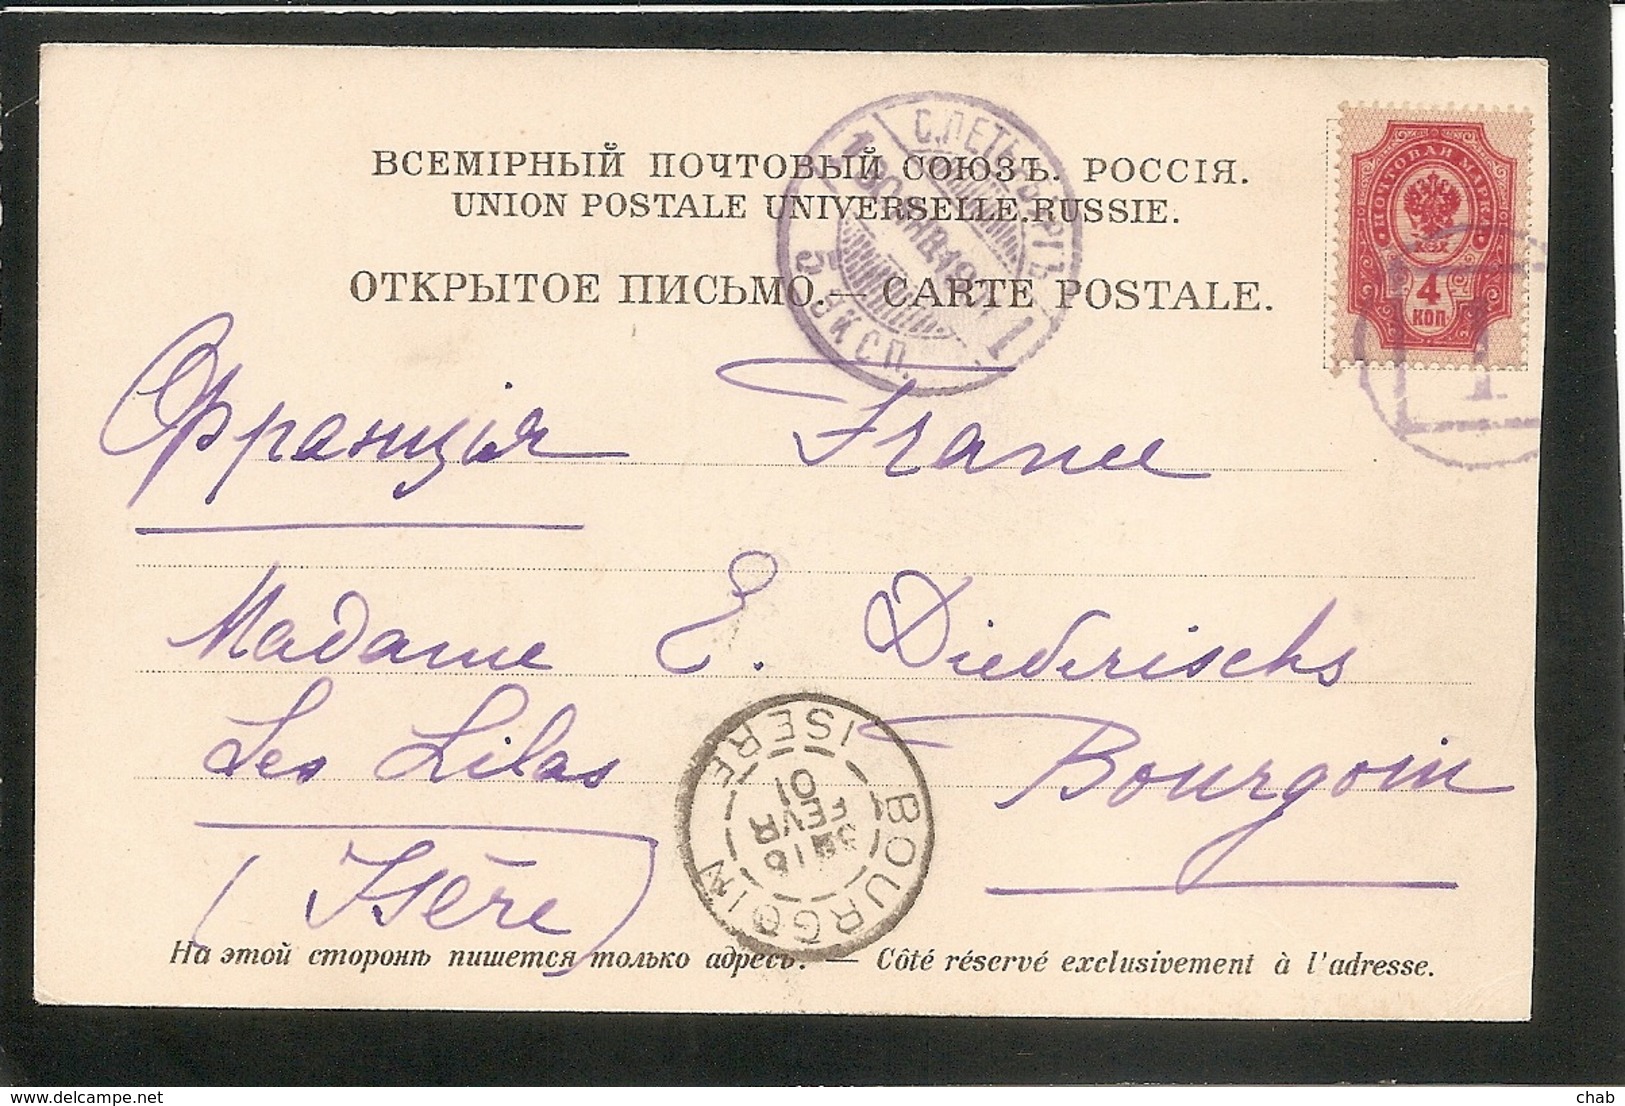 ВСЕМІРНЫЙ ПОЧТОВЫЙ СОЮЗЪ. РОССІЯ.
UNION POSTALE UNIVERSELLE. RUSSIE.
ОТКРЫТОЕ ПИСЬМО.— CARTE POSTALE.
С.ПЕТЕРБУРГЪ
ЯНВ. 1901
5 ЭКСП.
1
ПОЧТОВАЯ МАРКА
4
КОП
1
Франція France
Madame E. Diederichs
Les Lilas Bourgoin
(Isère)
BOURGOIN
ISERE
FEVR
01
На этой сторонѣ пишется только адресъ. — Côté réservé exclusivement à l'adresse.
delcampe.net
chab